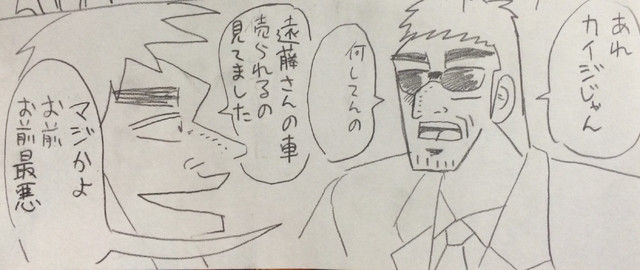 あれ
カイジじゃん
何してんの
遠藤さんの車
売られるの
見てました
マジかよ
お前
お前最悪